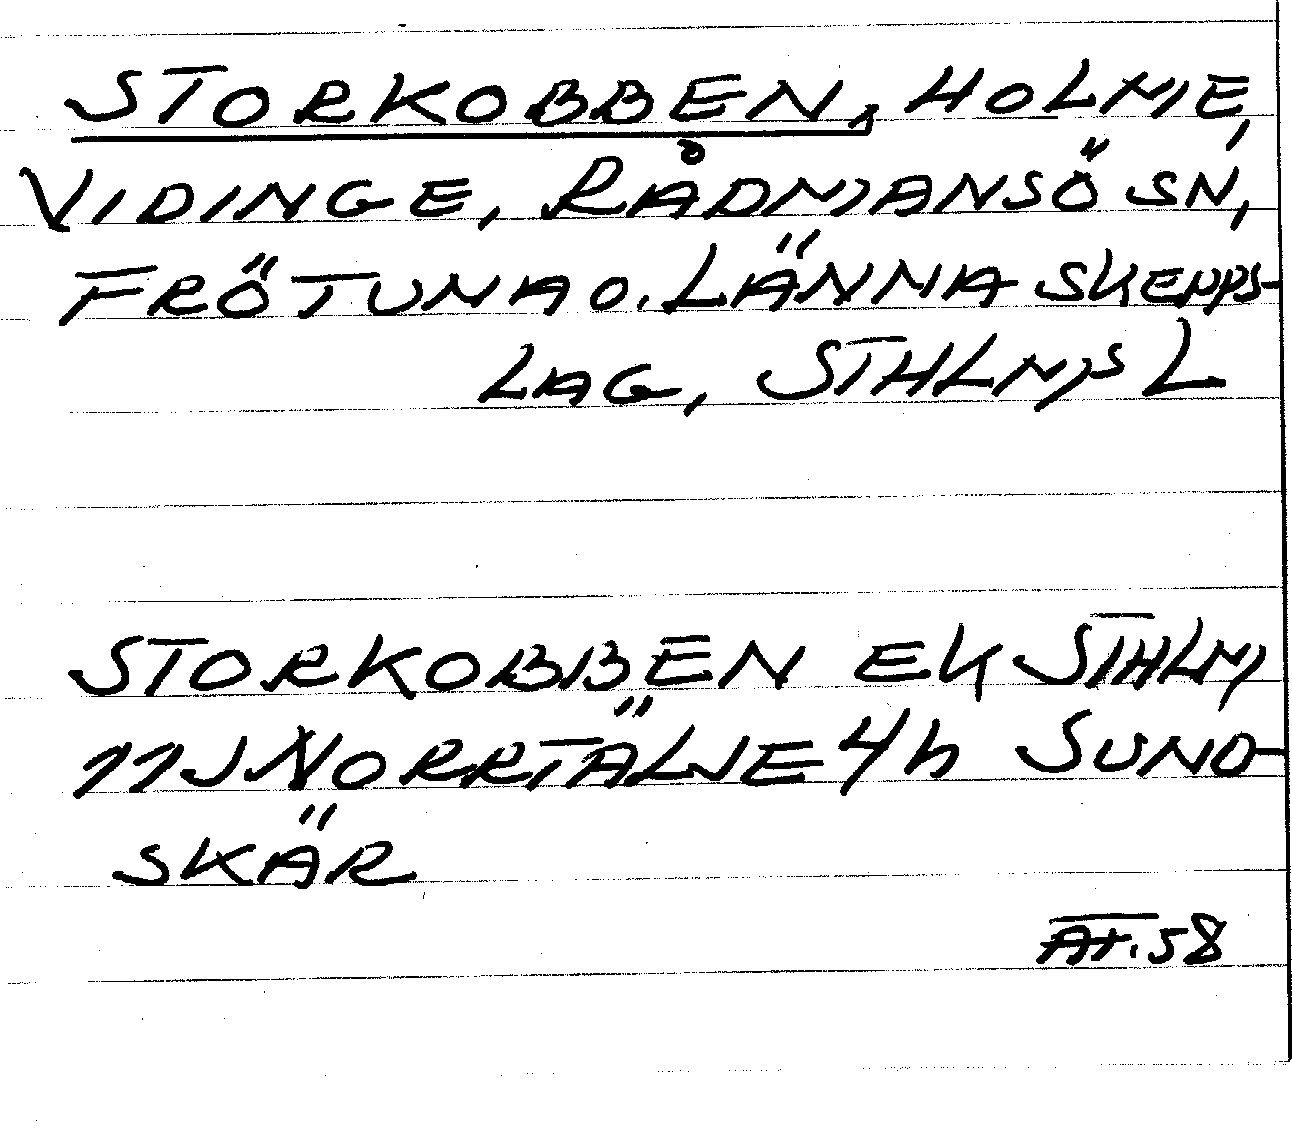 STORKOBBEN, HOLME,
VIDINGE, RÅDMANSÖ SN,
FRÖTUNA O. LÄNNA SKEPPS-
LAG, STHLMS L
STORKOBBEN EK STHLM
11J NORRTÄLJE 4h SUND-
SKÄR
58